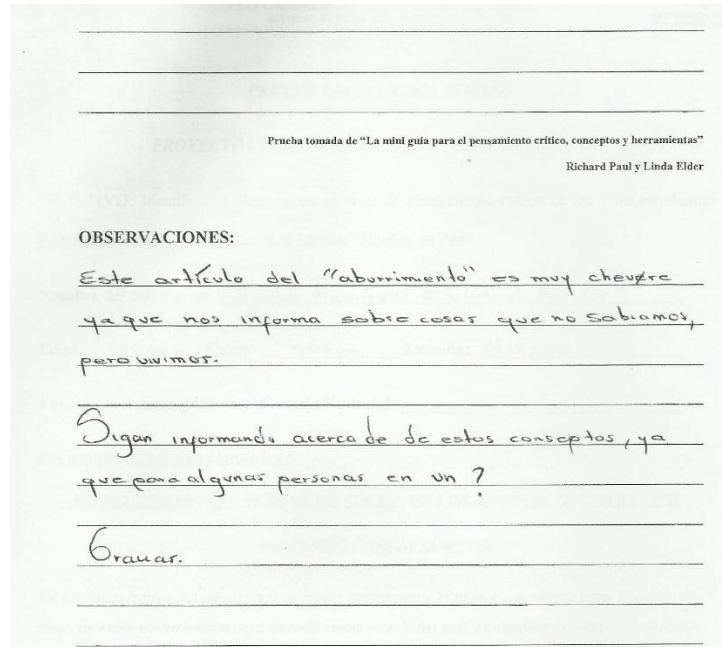 Prueba tomada de “La mini guía para el pensamiento crítico, conceptos y herramientas”
Richard Paul y Linda Elder
OBSERVACIONES:
Este artículo del "aburrimiento" es muy chevere
ya que nos informa sobre cosas que no sabiamos,
pero vivimos.
Sigan informando acerca de de estos conseptos, ya
que para algunas personas en un ?
Gracias.